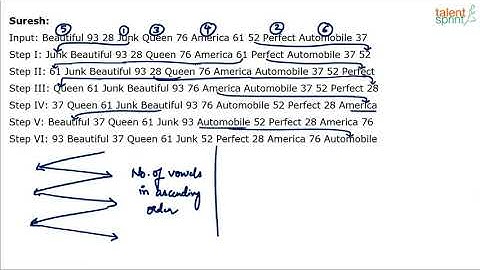 talent
sprint
Suresh:
5 1 3 4 2 6
Input: Beautiful 93 28 Junk Queen 76 America 61 52 Perfect Automobile 37
Step I: Junk Beautiful 93 28 Queen 76 America 61 Perfect Automobile 37 52
Step II: 61 Junk Beautiful 93 28 Queen 76 America Automobile 37 52 Perfect
Step III: Queen 61 Junk Beautiful 93 76 America Automobile 37 52 Perfect 28
Step IV: 37 Queen 61 Junk Beautiful 93 76 Automobile 52 Perfect 28 America
Step V: Beautiful 37 Queen 61 Junk 93 Automobile 52 Perfect 28 America 76
Step VI: 93 Beautiful 37 Queen 61 Junk 52 Perfect 28 America 76 Automobile
No. of vowels
in ascending
order